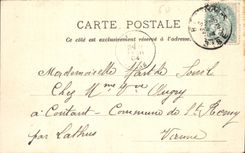 CARTE POSTALE
Ce côté est exclusivement réservé à l'adresse.
Mademoiselle
Chez Mme Vve
à Coutant - Commune de St Remy
par Lathus Vienne